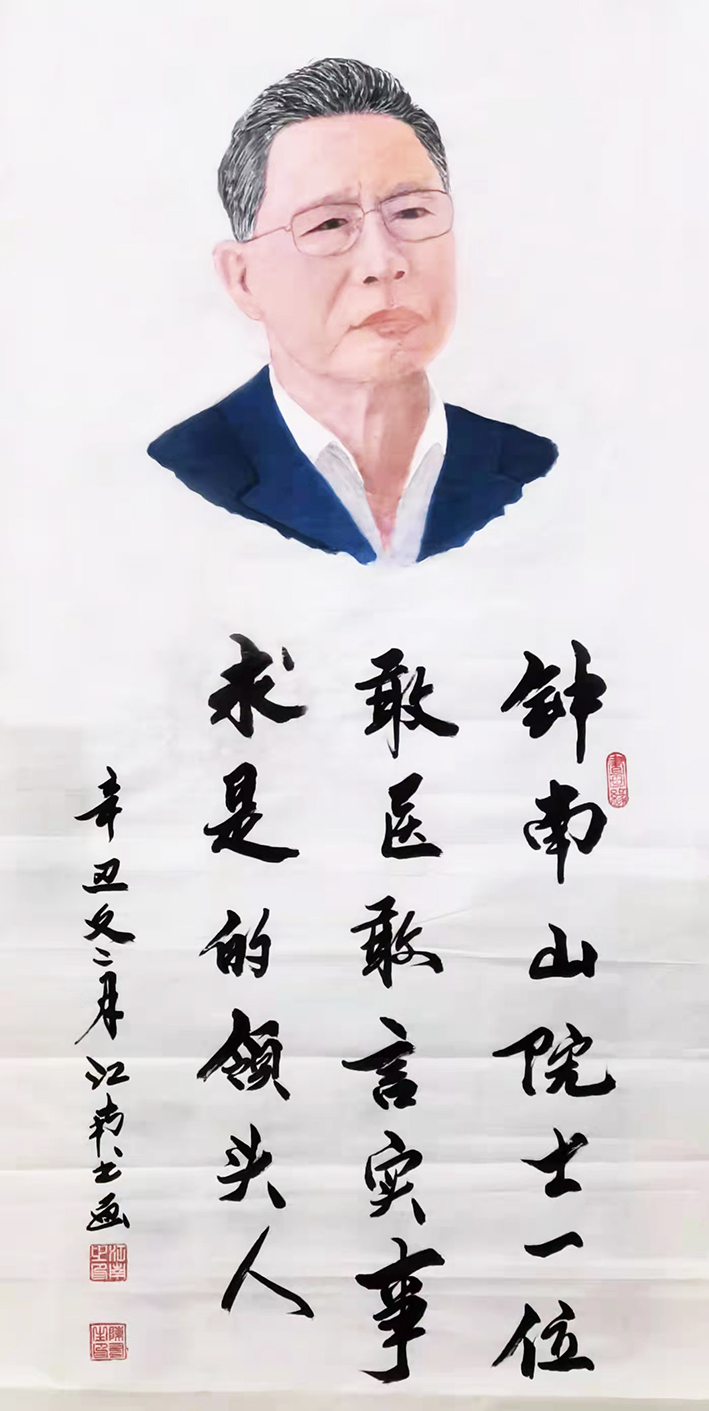 钟南山院士一位
敢医敢言实事
求是的领头人
辛丑年二月江南书画